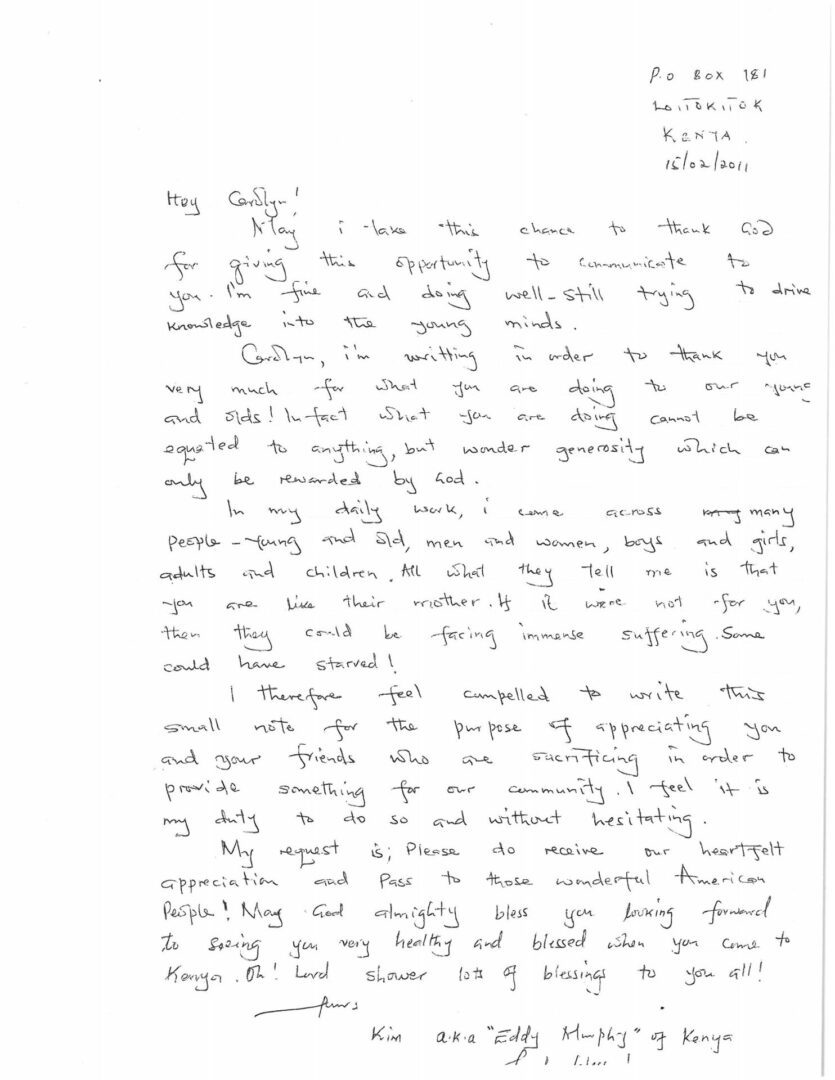 P.o BOX 181
LOITOKITOK
KENYA.
15/02/2011
Hey Carolyn!
May i take this chance to thank God
for giving this opportunity to communicate to
you. I'm fine and doing well - still trying to drive
knowledge into the young minds.
Carolyn, i'm writting in order to thank you
very much for what you are doing to our young
and olds! Infact what you are doing cannot be
equated to anything, but wonder generosity which can
only be rewarded by God.
In my daily work, i come across many
people - young and old, men and women, boys and girls,
adults and children. All what they tell me is that
you are like their mother. If it were not for you,
then they could be facing immense suffering. Some
could have starved!
I therefore feel compelled to write this
small note for the purpose of appreciating you
and your friends who are sacrificing in order to
provide something for our community. I feel it is
my duty to do so and without hesitating.
My request is; Please do receive our heartfelt
appreciation and Pass to those wonderful American
People! May God almighty bless you looking forward
to seeing you very healthy and blessed when you come to
Kenya. Oh! Lord shower lots of blessings to you all!
Yours
Kim a.k.a "Eddy Murphy" of Kenya